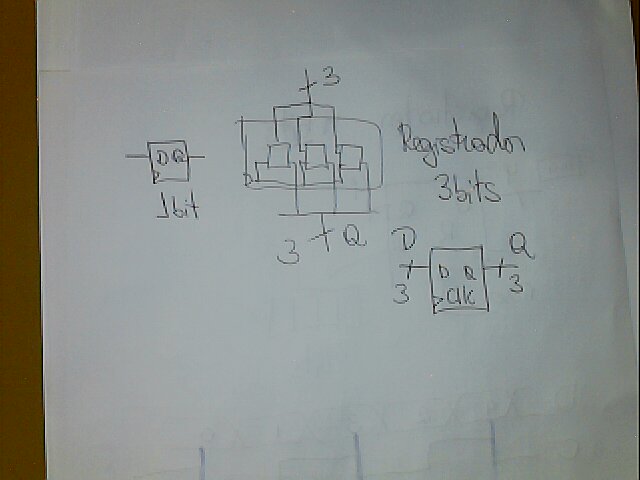 3
D Q
1bit
3 Q
Registrador
3bits
D Q
3 3
D Q
Clk